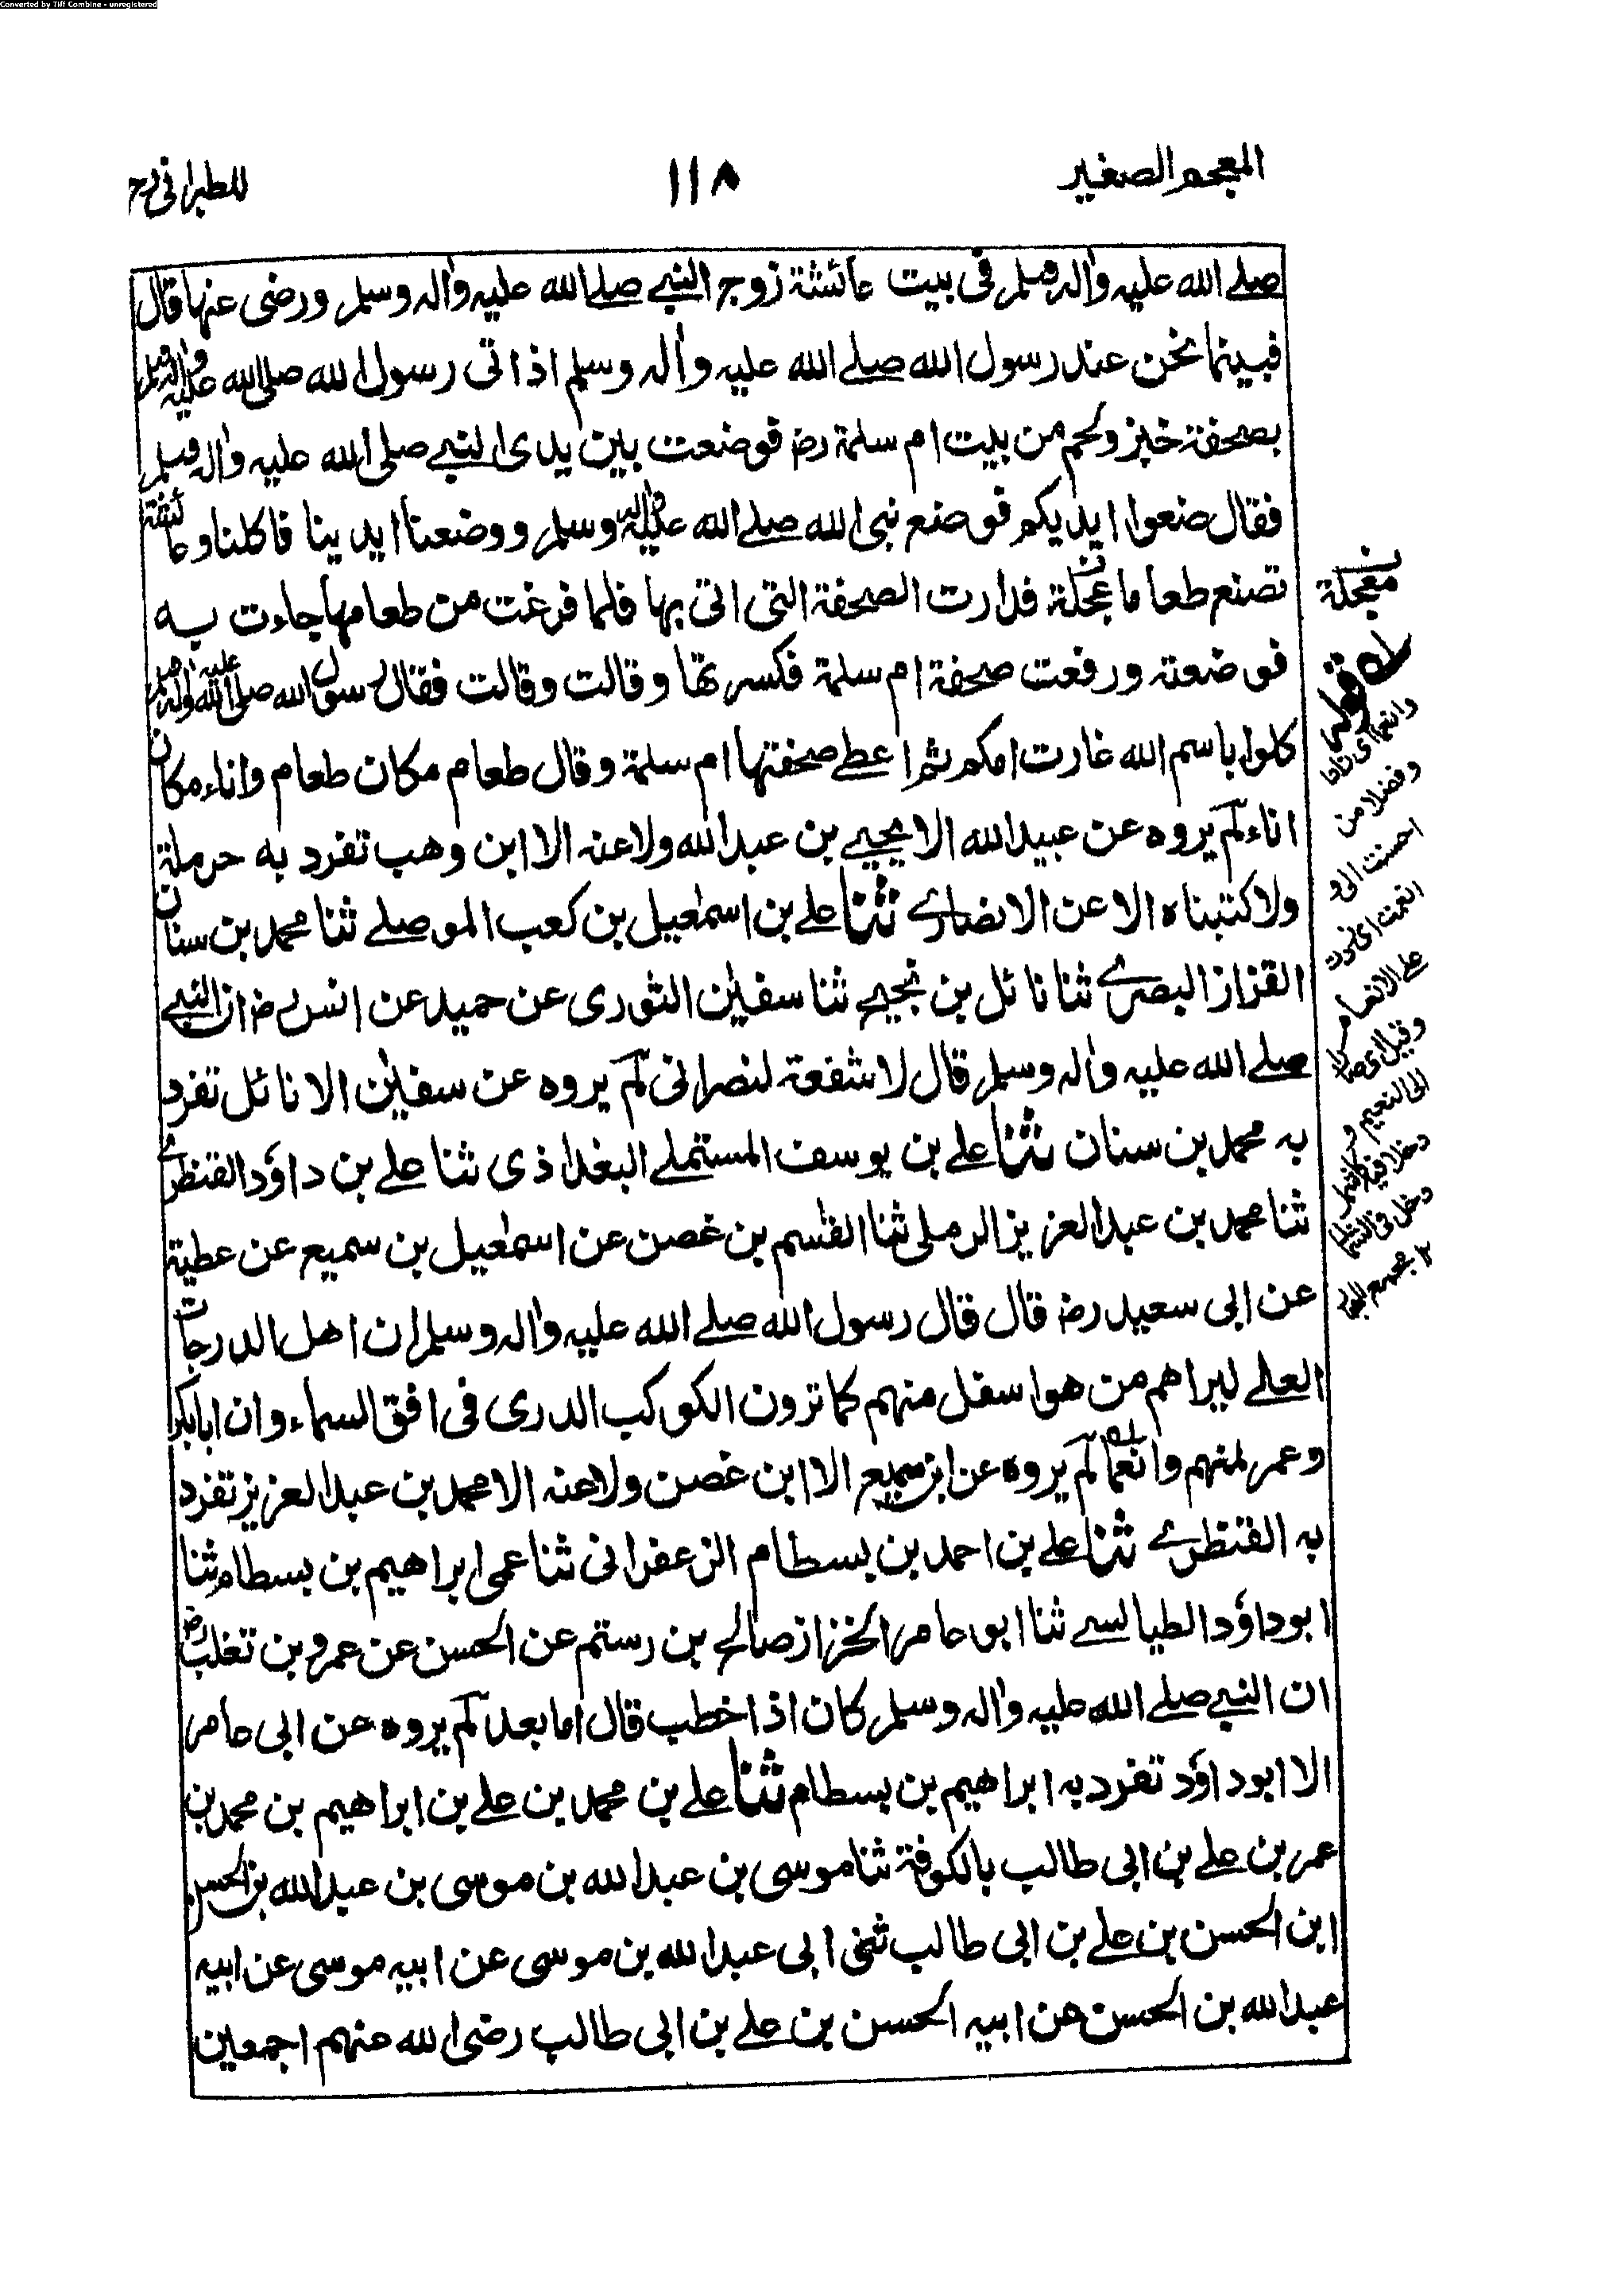 Converted by Tiff Combine - unregistered
المعجم الصغير
١١٨
للطبراني رح
صلے الله عليه واٰله وسلم فى بيت عائشة زوج النبے صلے الله عليه واٰله وسلم ورضى عنها قال
فبينما نحن عند رسول الله صلے الله عليه واٰله وسلم اذ اتى رسول الله صلى الله عليه واٰله وسلم
بصحفة خبز ولحم من بيت ام سلمة رض فوضعت بين يدى النبے صلى الله عليه واٰله وسلم
فقال ضعوا ايديكم فوضع نبى الله صلے الله عليه واٰله وسلم ووضعنا ايدينا فاكلنا وعائشة
تصنع طعاما عجلة فدارت الصحفة التى اتى بها فلما فرغت من طعامها جاءت به
فوضعته ورفعت صحفة ام سلمة فكسرتها وقالت وقالت فقال رسول الله صلى الله عليه واٰله وسلم
كلوا باسم الله غارت امكم ثم اعطے صحفتها ام سلمة وقال طعام مكان طعام واناء مكان
اناء لم يروه عن عبيد الله الا يحيے بن عبد الله ولا عنه الا ابن وهب تفرد به حرملة
ولا كتبناه الا عن الانصارے ثنا علے بن اسمٰعيل بن كعب الموصلے ثنا محمد بن سنان
القزاز البصرے ثنا نائل بن نجيح ثنا سفيٰن الثورى عن حميد عن انس رض ان النبے
صلے الله عليه واٰله وسلم قال لا شفعة لنصرانى لم يروه عن سفيٰن الا نائل تفرد
به محمد بن سنان ثنا علے بن يوسف المستملے البغداذى ثنا علے بن داؤد القنطرے
ثنا محمد بن عبد العزيز الرملى ثنا القٰسم بن غصن عن اسمٰعيل بن سميع عن عطية
عن ابى سعيد رض قال قال رسول الله صلے الله عليه واٰله وسلم ان اهل الدرجات
العلے ليراهم من هو اسفل منهم كما ترون الكوكب الدرى فى افق السماء وان ابا بكر
وعمر لمنهم وانعما لم يروه عن ابن سميع الا ابن غصن ولا عنه الا محمد بن عبد العزيز تفرد
به القنطرے ثنا علے بن احمد بن بسطام الزعفرانى ثنا عمى ابراهيم بن بسطام ثنا
ابو داؤد الطيالسے ثنا ابو عامر الخزاز صالح بن رستم عن الحسن عن عمرو بن تغلب رض
ان النبے صلے الله عليه واٰله وسلم كان اذا خطب قال اما بعد لم يروه عن ابى عامر
الا ابو داؤد تفرد به ابراهيم بن بسطام ثنا علے بن محمد بن علے بن ابراهيم بن محمد بن
عمر بن علے بن ابى طالب بالكوفة ثنا موسى بن عبد الله بن موسى بن عبد الله بن الحسن
ابن الحسن بن علے بن ابى طالب ثنى ابى عبد الله بن موسى عن ابيه موسى عن ابيه
عبد الله بن الحسن عن ابيه الحسن بن علے بن ابى طالب رضى الله عنهم اجمعين
معجلة
له قوله
وانعما اى زادا
وفضلا من
احسنت الى و
انعمت اى زدت
على الانعام
وقيل اى صارا
الى النعيم و
دخلا فيه
دخل فى الشمال